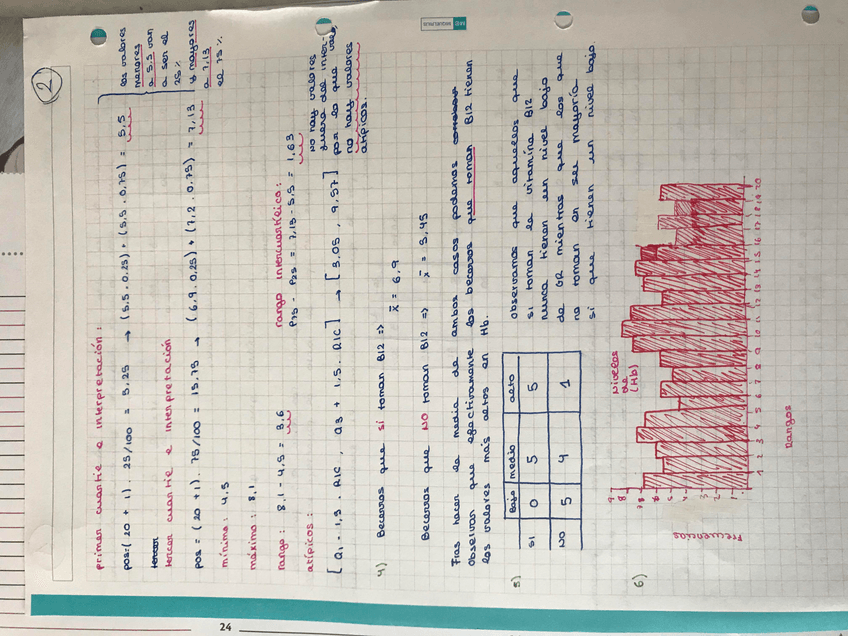 2
primer cuartil e interpretación:
pos=(20 + 1) · 25/100 = 5,25 → (5,5 · 0,25) + (5,5 · 0,75) = 5,5
los valores
menores
a 5,5 van
a ser el
25%
y mayores
a 7,13
el 75%.
tercer cuartil e interpretación
pos = (20 + 1) · 75/100 = 15,75 → (6,9 · 0,25) + (7,2 · 0,75) = 7,13
mínimo: 4,5
máximo: 8,1
rango: 8,1 - 4,5 = 3,6
rango intercuartílico:
P75 - P25 = 7,13 - 5,5 = 1,63
atípicos:
[Q1 - 1,5 · RIC, Q3 + 1,5 · RIC] → [3,05, 9,57]
No hay valores
fuera del inter-
por lo que
no hay valores
atípicos.
4) Becerros que sí toman B12 =>
x̄ = 6,9
Becerros que NO toman B12 => x̄ = 5,45
Tras hacer la media de ambos casos podemos
observar que efectivamente los becerros que toman B12 tienen
los valores más altos en Hb.
5)
Bajo medio alto
SI 0 5 5
NO 5 4 1
observamos que aquellos que
si toman la vitamina B12
nunca tienen un nivel bajo
de GR mientras que los que
no toman en ser mayoría
si que tienen un nivel bajo.
6)
Niveles
de
(Hb)
Frecuencias
9
8
7
6
5
4
3
2
1
1 2 3 4 5 6 7 8 9 10 11 12 13 14 15 16 17 18 19 20
Rangos
MIQUELRIUS
24